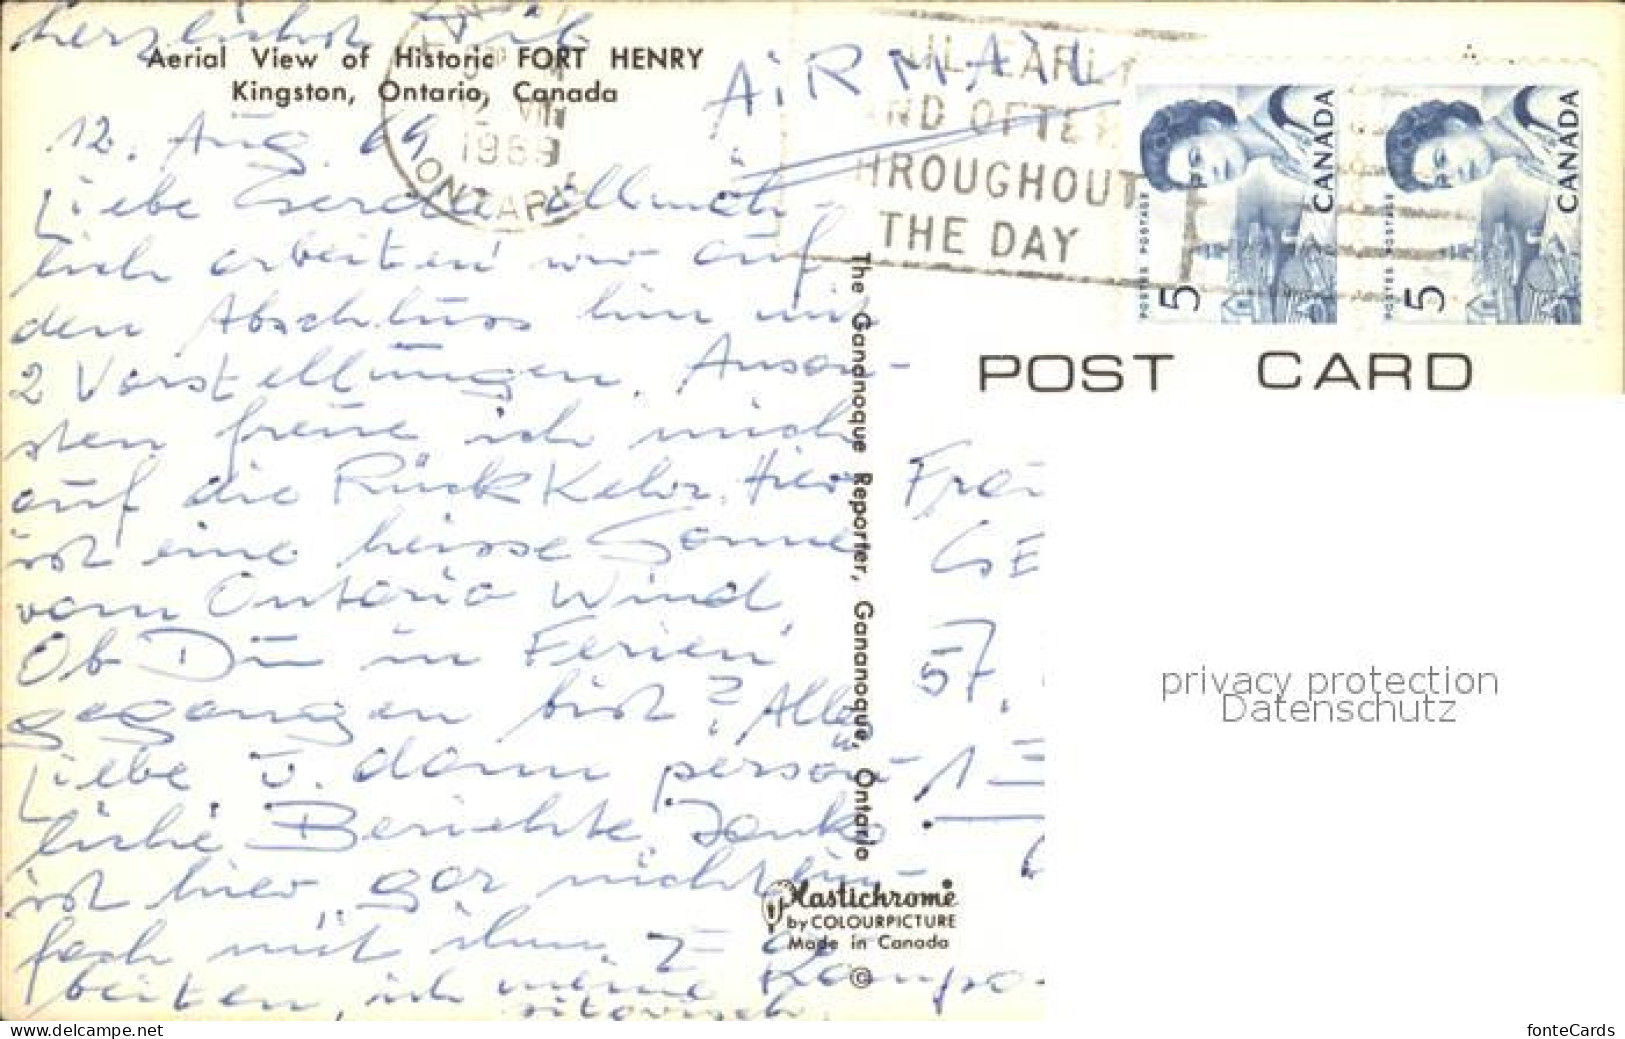 herzlichst
Aerial View of Historic FORT HENRY
Kingston, Ontario, Canada
AiRMAIL
1969
ONTARIO
MAIL EARLY
AND OFTEN
THROUGHOUT
THE DAY
CANADA
POSTES POSTAGE
5
CANADA
POSTES POSTAGE
5
POST CARD
12. Aug. 69
Liebe Gerda allmäh-
lich arbeiten wir auf
den Abschluss hin mit
2 Vorstellungen. Anson-
sten freue ich mich
auf die Rückkehr. Hier
ist eine heisse Sonne
vom Ontario Wind.
Ob Du in Ferien
gegangen bist? Alles
Liebe u. dann persön-
liche Berichte. Janko
ist hier, gar nicht ein-
fach mit ihm z= ar
beiten, ich meine Kompo-
sitorisch.
The Gananoque Reporter, Gananoque, Ontario
Plastichrome
by COLOURPICTURE
Made in Canada
©
Frä
GE
57.
1
privacy protection
Datenschutz
delcampe.net/store/ansichtskarten-center
fonteCards